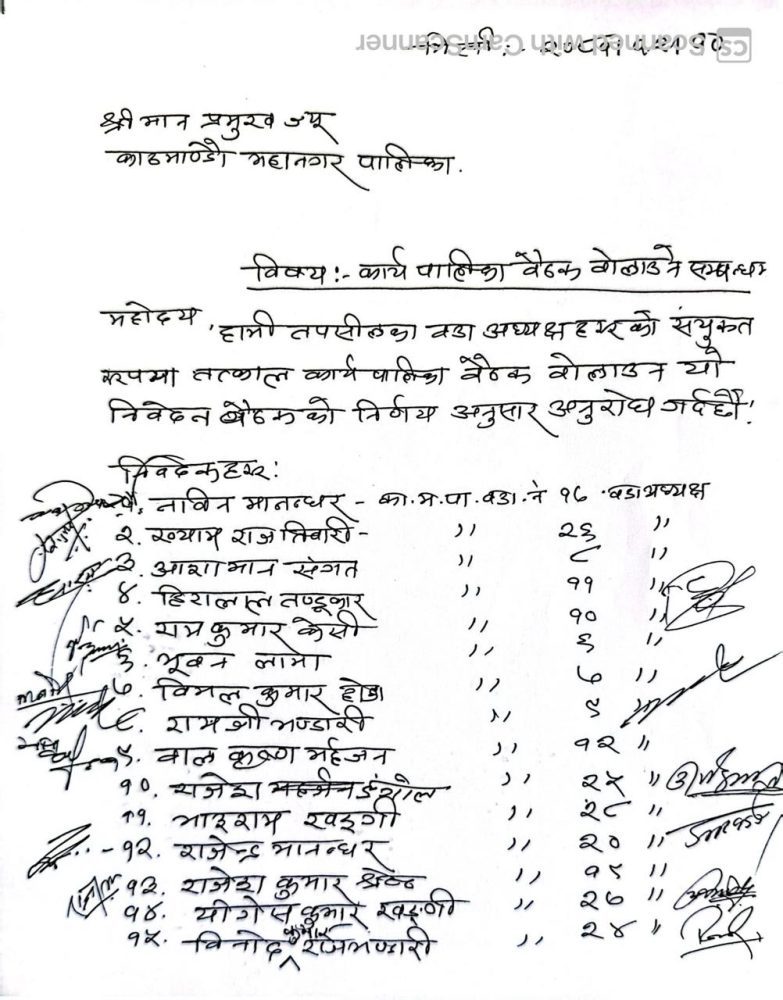 मिती :- २०८१
Scanned with CamScanner
श्रीमान प्रमुख ज्यू
काठमाण्डौ महानगर पालिका.
विषय :- कार्य पालिका बैठक बोलाउने सम्बन्धमा
महोदय,
हामी तपसीलका वडा अध्यक्ष हरुको संयुक्त
रुपमा तत्काल कार्य पालिका बैठक बोलाउन यो
निवेदन बैठकको निर्णय अनुसार अनुरोध गर्दछौं!
निवेदकहरु :
१. नाविन मानन्धर - का.म.पा. वडा नं १७ वडा अध्यक्ष
२. श्याम राज तिवारी - " २६ "
३. आशा मान संगत " ८ "
४. हिरालाल तण्डूकार " ११ "
५. राम कुमार केसी " १० "
६. भूवन लामा " ६ "
७. विमल कुमार होडा " ७ "
८. रामजी भण्डारी " ९ "
९. बाल कृष्ण महर्जन " १२ "
१०. राजेश डंगोल " २५ "
११. भाइराम खड्गी " २८ "
१२. राजेन्द्र मानन्धर " २० "
१३. राजेश कुमार श्रेष्ठ " १९ "
१४. योगेस कुमार खड्गी " २७ "
१५. विनोद कुमार राजभण्डारी " २४ "